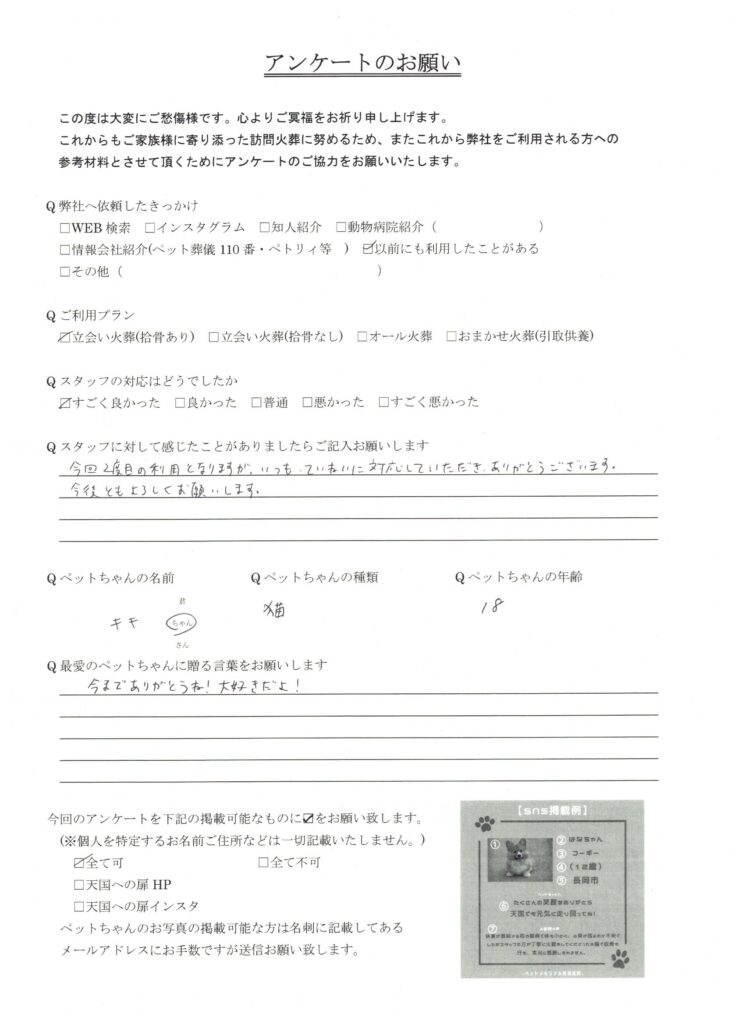 アンケートのお願い
この度は大変にご愁傷様です。心よりご冥福をお祈り申し上げます。
これからもご家族様に寄り添った訪問火葬に努めるため、またこれから弊社をご利用される方への
参考材料とさせて頂くためにアンケートのご協力をお願いいたします。
Q 弊社へ依頼したきっかけ
□WEB 検索 □インスタグラム □知人紹介 □動物病院紹介（ ）
□情報会社紹介(ペット葬儀 110 番・ペトリィ等 ) ☑以前にも利用したことがある
□その他（ ）
Q ご利用プラン
☑立会い火葬(拾骨あり) □立会い火葬(拾骨なし) □オール火葬 □おまかせ火葬(引取供養)
Q スタッフの対応はどうでしたか
☑すごく良かった □良かった □普通 □悪かった □すごく悪かった
Q スタッフに対して感じたことがありましたらご記入お願いします
今回2度目の利用となりますが、いつも、ていねいに対応していただき、ありがとうございます。
今後ともよろしくお願いします。
Q ペットちゃんの名前 Q ペットちゃんの種類 Q ペットちゃんの年齢
君
キキ ちゃん 猫 18
さん
Q 最愛のペットちゃんに贈る言葉をお願いします
今までありがとうね！大好きだよ！
今回のアンケートを下記の掲載可能なものに☑をお願い致します。
(※個人を特定するお名前ご住所などは一切記載いたしません。)
☑全て可 □全て不可
□天国への扉 HP
□天国への扉インスタ
ペットちゃんのお写真の掲載可能な方は名刺に記載してある
メールアドレスにお手数ですが送信お願い致します。
【sns掲載例】
① ② はなちゃん
③ コーギー
④ (12歳)
⑤ 長岡市
⑥ たくさんの笑顔をありがとう
天国でも元気に走り回ってね!
⑦